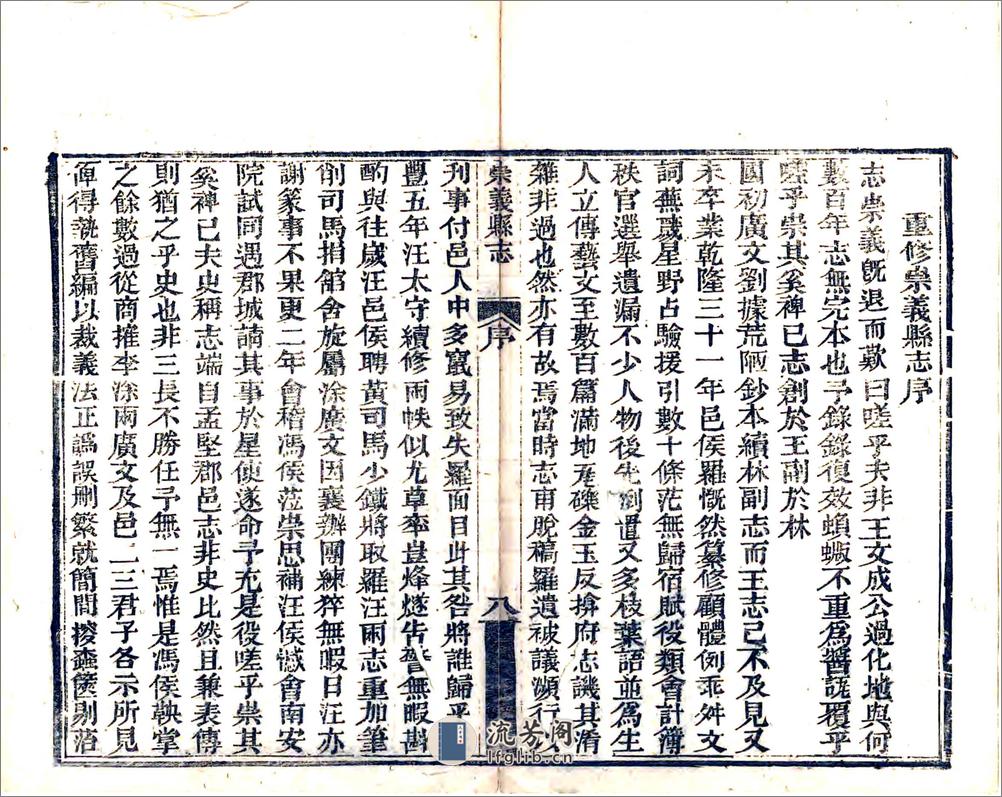 重修崇義縣志序
志崇義旣退而歎曰嗟乎夫非王文成公過化地與何
數百年志無完本也予錄錄復效蝜蝂不重爲醬瓿覆乎
嗟乎崇其奚裨已志創於王副於林
國初廣文劉據荒陋鈔本續林副志而王志已不及見又
未卒業乾隆三十一年邑侯羅慨然纂修顧體例乖舛文
詞蕪蔓星野占驗援引數十條茫無歸宿賦役類會計簿
秩官選舉遺漏不少人物後先倒置又多枝葉語並爲生
人立傳藝文至數百篇滿地瓦礫金玉反揜府志譏其淆
雜非過也然亦有故焉當時志甫脫稿羅遺被議瀕行以
崇義縣志
序
八
刋事付邑人中多竄易致失羅面目此其咎將誰歸乎
豐五年汪太守續修兩帙似尤草率豈烽燧吿警無暇斟
酌與往歲汪邑侯聘黃司馬少鐵將取羅汪兩志重加筆
削司馬捐館舍旋屬涂廣文因襄辦團練猝無暇日汪亦
謝篆事不果更二年會稽馮侯蒞崇思補汪侯憾會南安
院試同遇郡城謫其事於星使遂命予充是役嗟乎崇其
奚裨已夫史稱志端自孟堅郡邑志非史比然且兼表傳
則猶之乎史也非三長不勝任予無一焉惟是馮侯鞅掌
之餘數過從商搉李涂兩廣文及邑二三君子各示所見
俾得就舊編以裁義法正譌誤刪繁就簡間撥蠹篋剔落
流芳阁
lfglib.cn